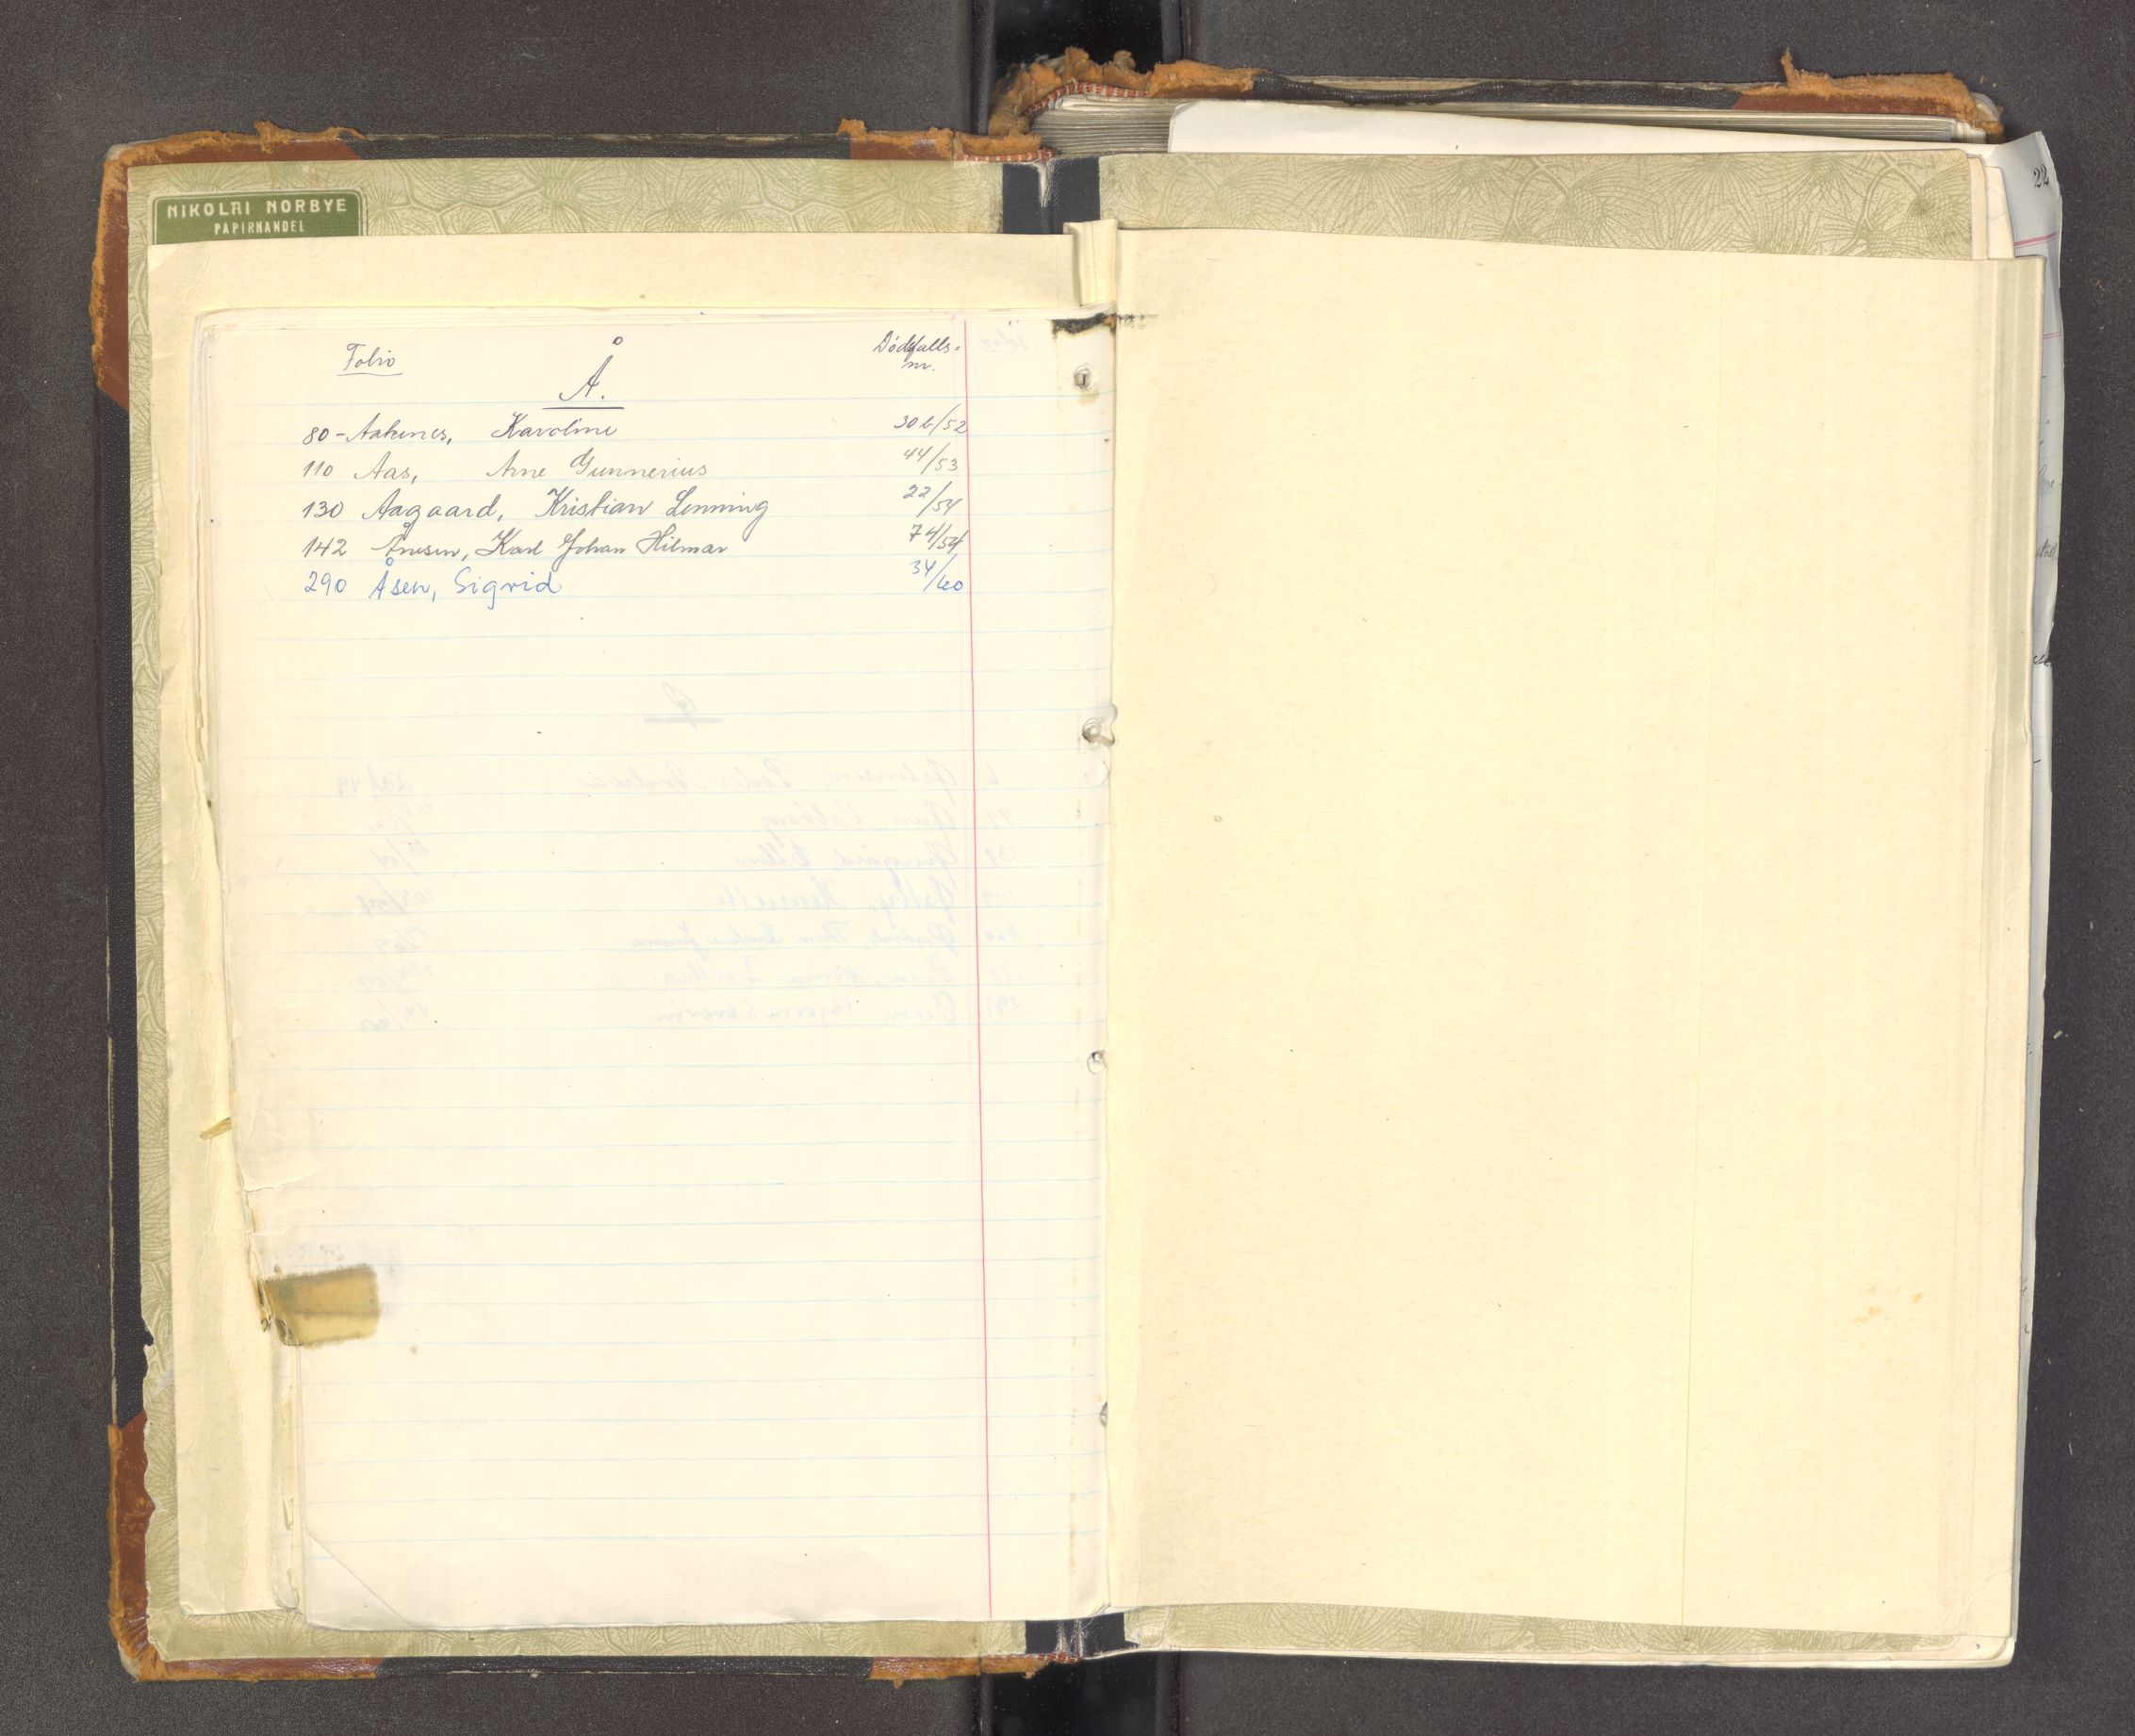 NIKOLAI NORBYE
PAPIRHANDEL
Folio
Dødsfalls-
nr.
Å.
80 - Aakenes, Karoline 306/52
110 Aas, Arne Gunnerius 44/53
130 Aagaard, Kristian Lenning 22/54
142 Ånesen, Karl Johan Hilmar 74/54
290 Åsen, Sigrid 34/60
22